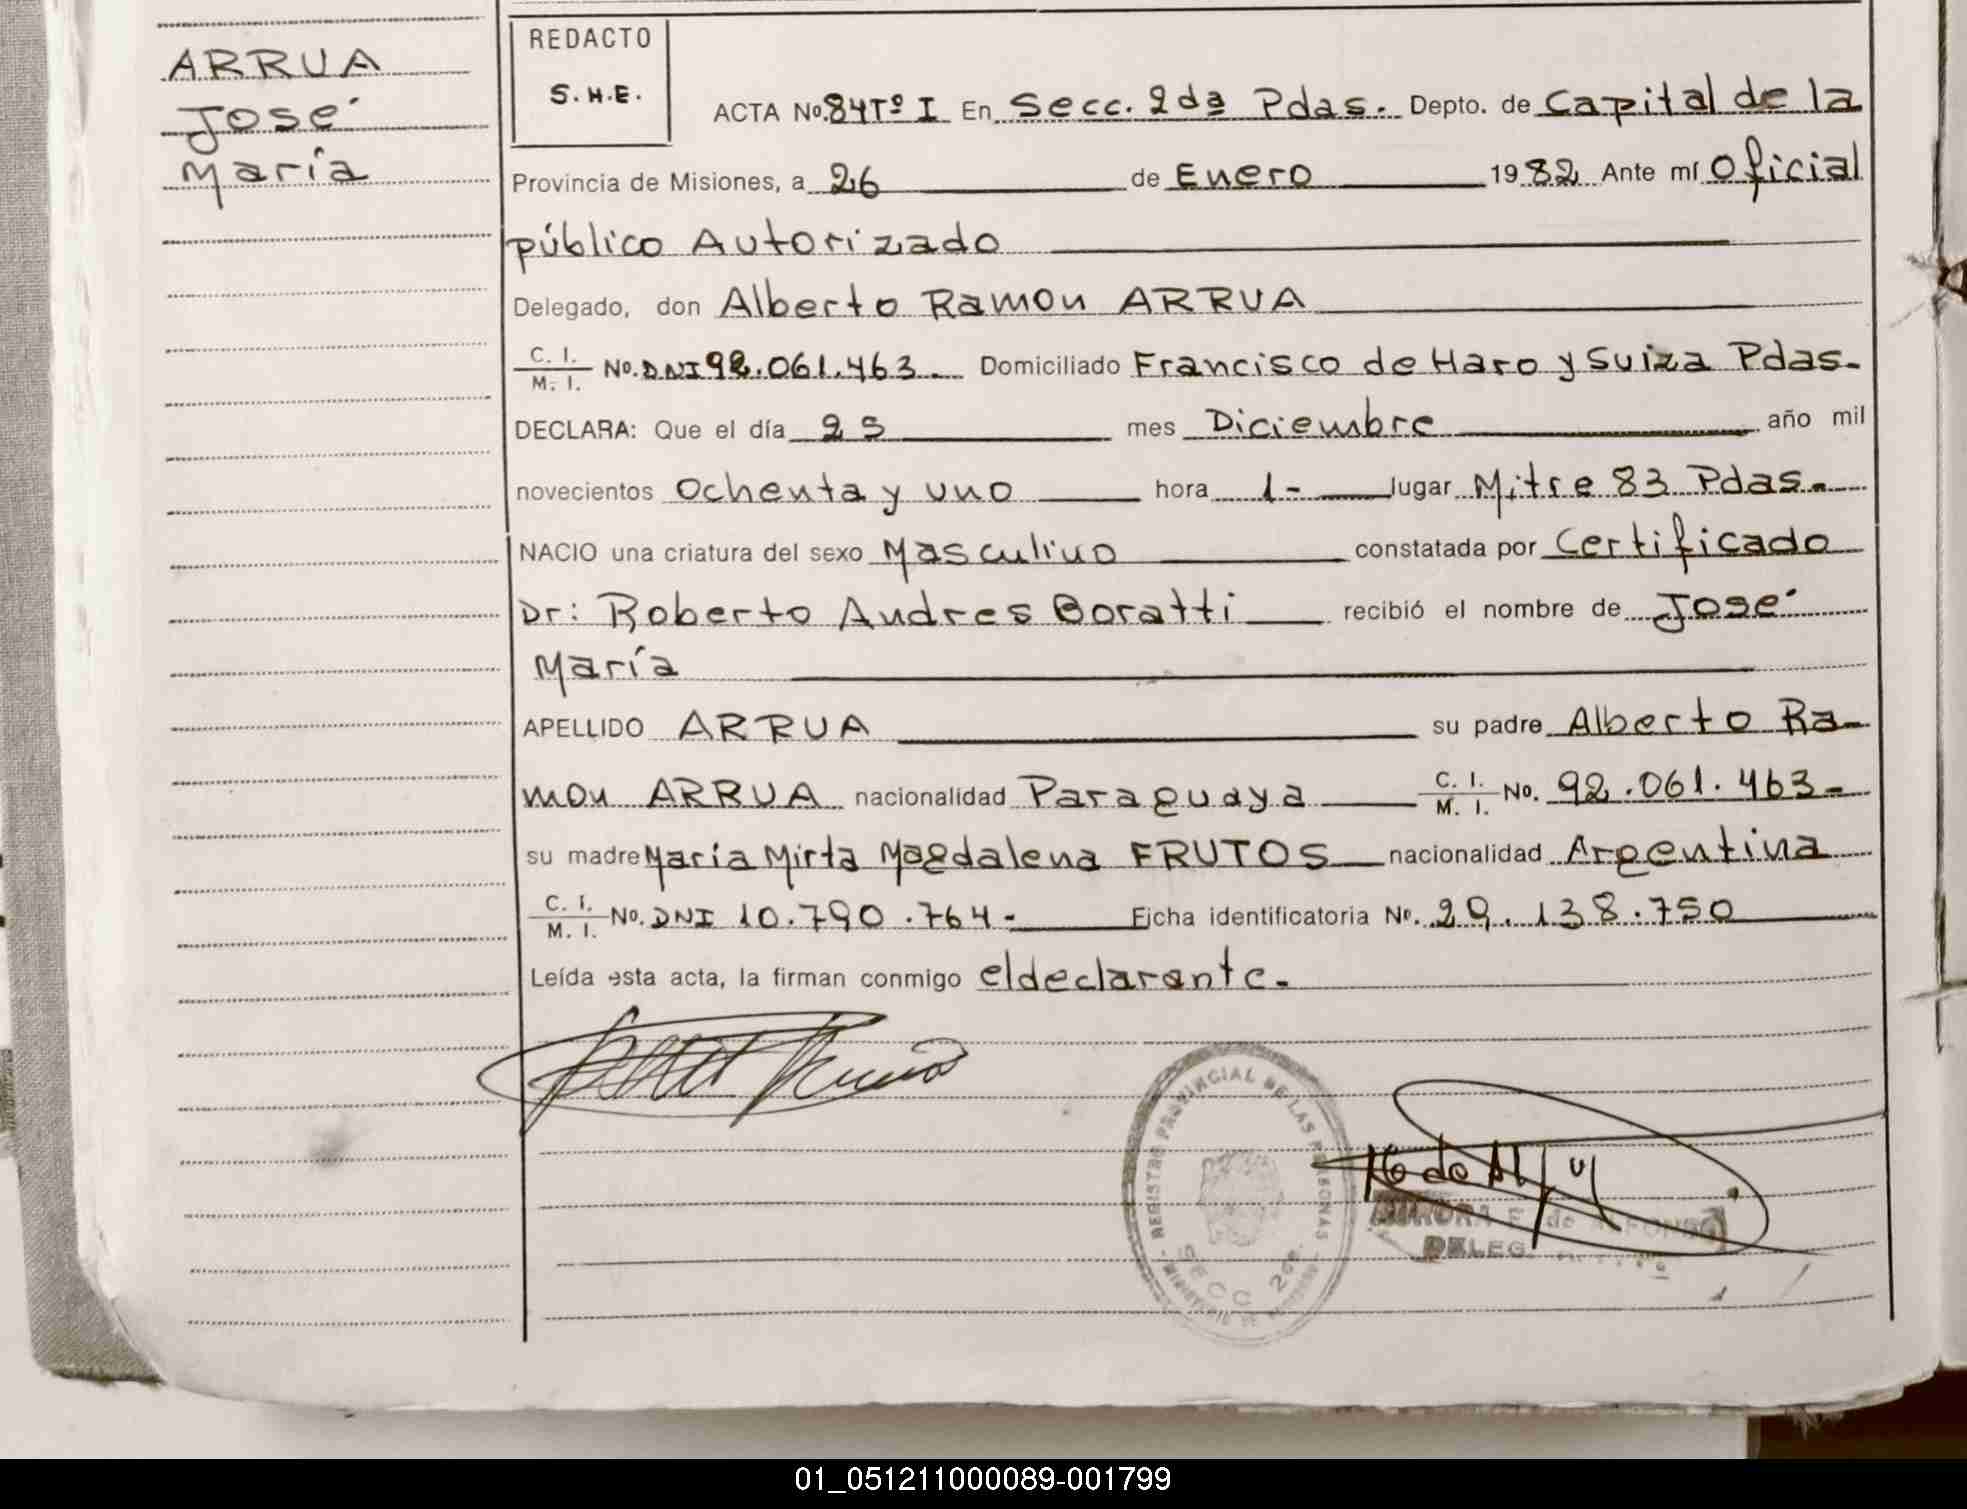 ARRUA
José
María
REDACTO
S.H.E.
ACTA No. 84 Tº I En Secc. 2da Pdas. Depto. de Capital de la
Provincia de Misiones, a 26 de Enero 1982 Ante mí Oficial
público Autorizado
Delegado, don Alberto Ramon ARRUA
C. I. / M. I. No. DNI 92.061.463. Domiciliado Francisco de Haro y Suiza Pdas.
DECLARA: Que el día 25 mes Diciembre año mil
novecientos Ochenta y uno hora 1- lugar Mitre 83 Pdas.
NACIO una criatura del sexo Masculino constatada por Certificado
Dr: Roberto Andres Boratti recibió el nombre de José
María
APELLIDO ARRUA su padre Alberto Ra-
mon ARRUA nacionalidad Paraguaya C. I. / M. I. No. 92.061.463-
su madre María Mirta Magdalena FRUTOS nacionalidad Argentina
C. I. / M. I. No. DNI 10.790.764- Ficha identificatoria No. 29.138.750
Leída esta acta, la firman conmigo el declarante.
REGISTRO PROVINCIAL DE LAS PERSONAS
SECC 2da.
AURORA E. de ALFONSO
DELEG.
01_051211000089-001799